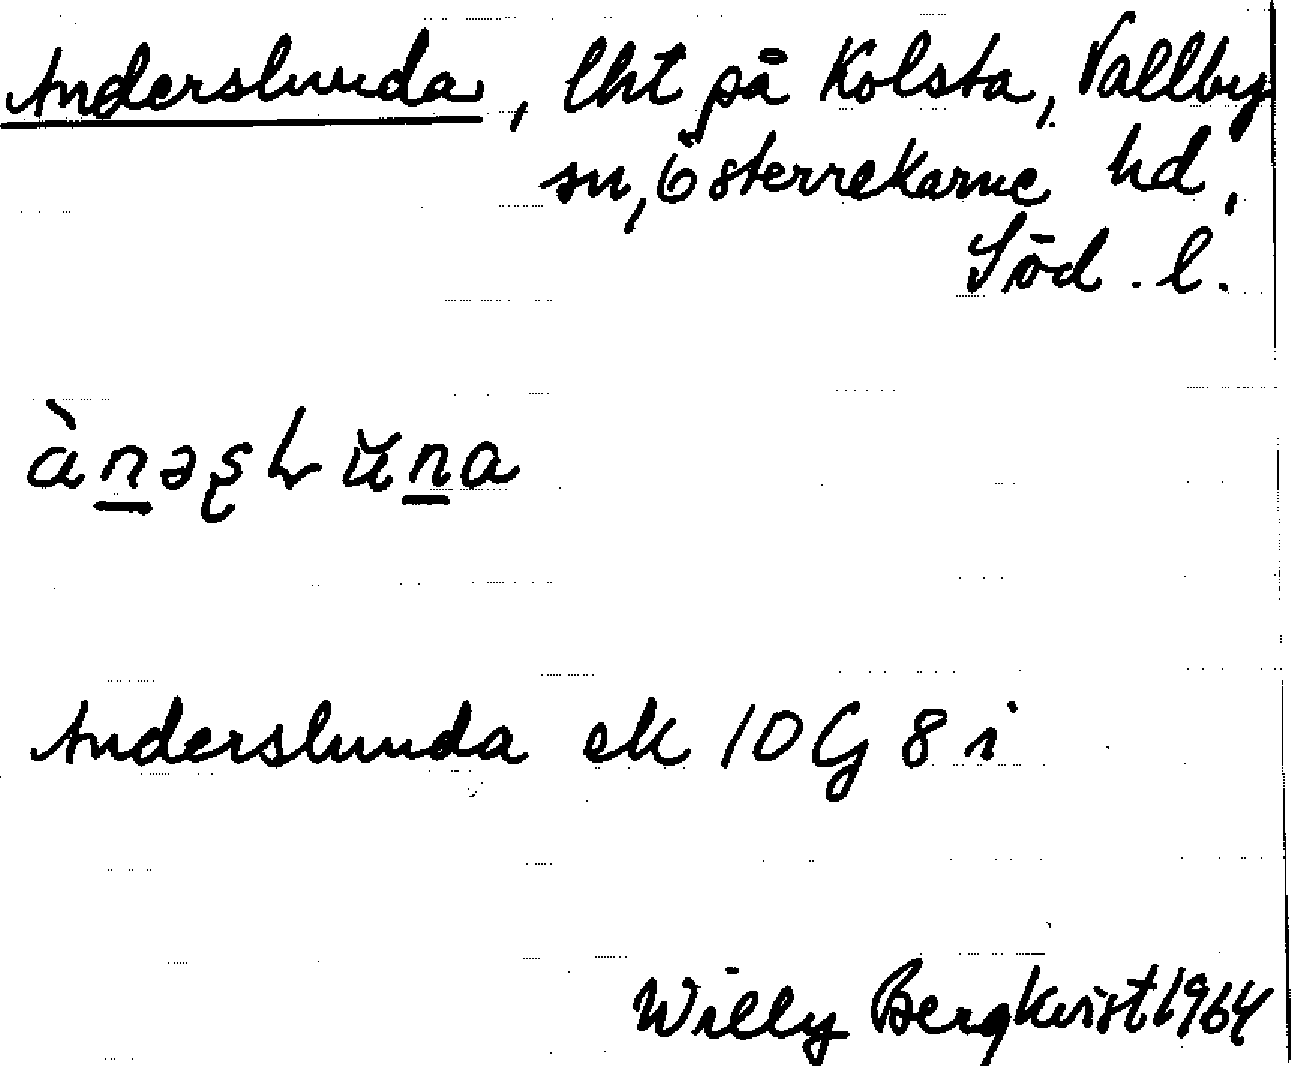 Anderslunda, lht på Kolsta, Vallby
sn, Österrekarne hd,
Söd. l.
Anderslunda ek 10G 8i
Willy Bergkvist 1964